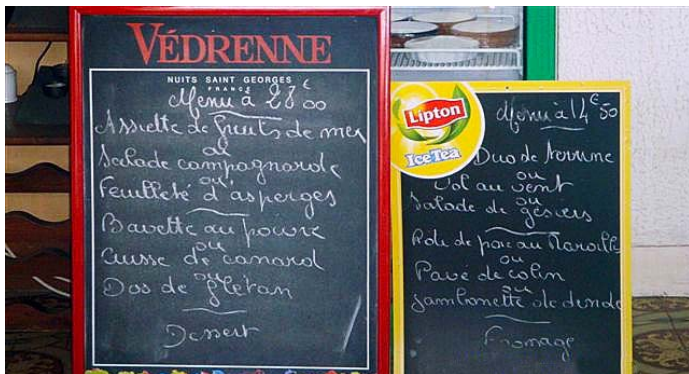 VÉDRENNE
NUITS SAINT GEORGES
FRANCE
Menu à 23€00
Assiette de fruits de mer
ou
Salade campagnarde
ou
Feuilleté d'asperges
Bavette au poivre
ou
Cuisse de canard
ou
Dos de flétan
Dessert
Lipton
Ice Tea
Menu à 14€50
Duo de terrine
ou
Vol au vent
ou
Salade de gésiers
Roti de porc au Maroilles
ou
Pavé de colin
ou
Jambonette de dinde
Fromage